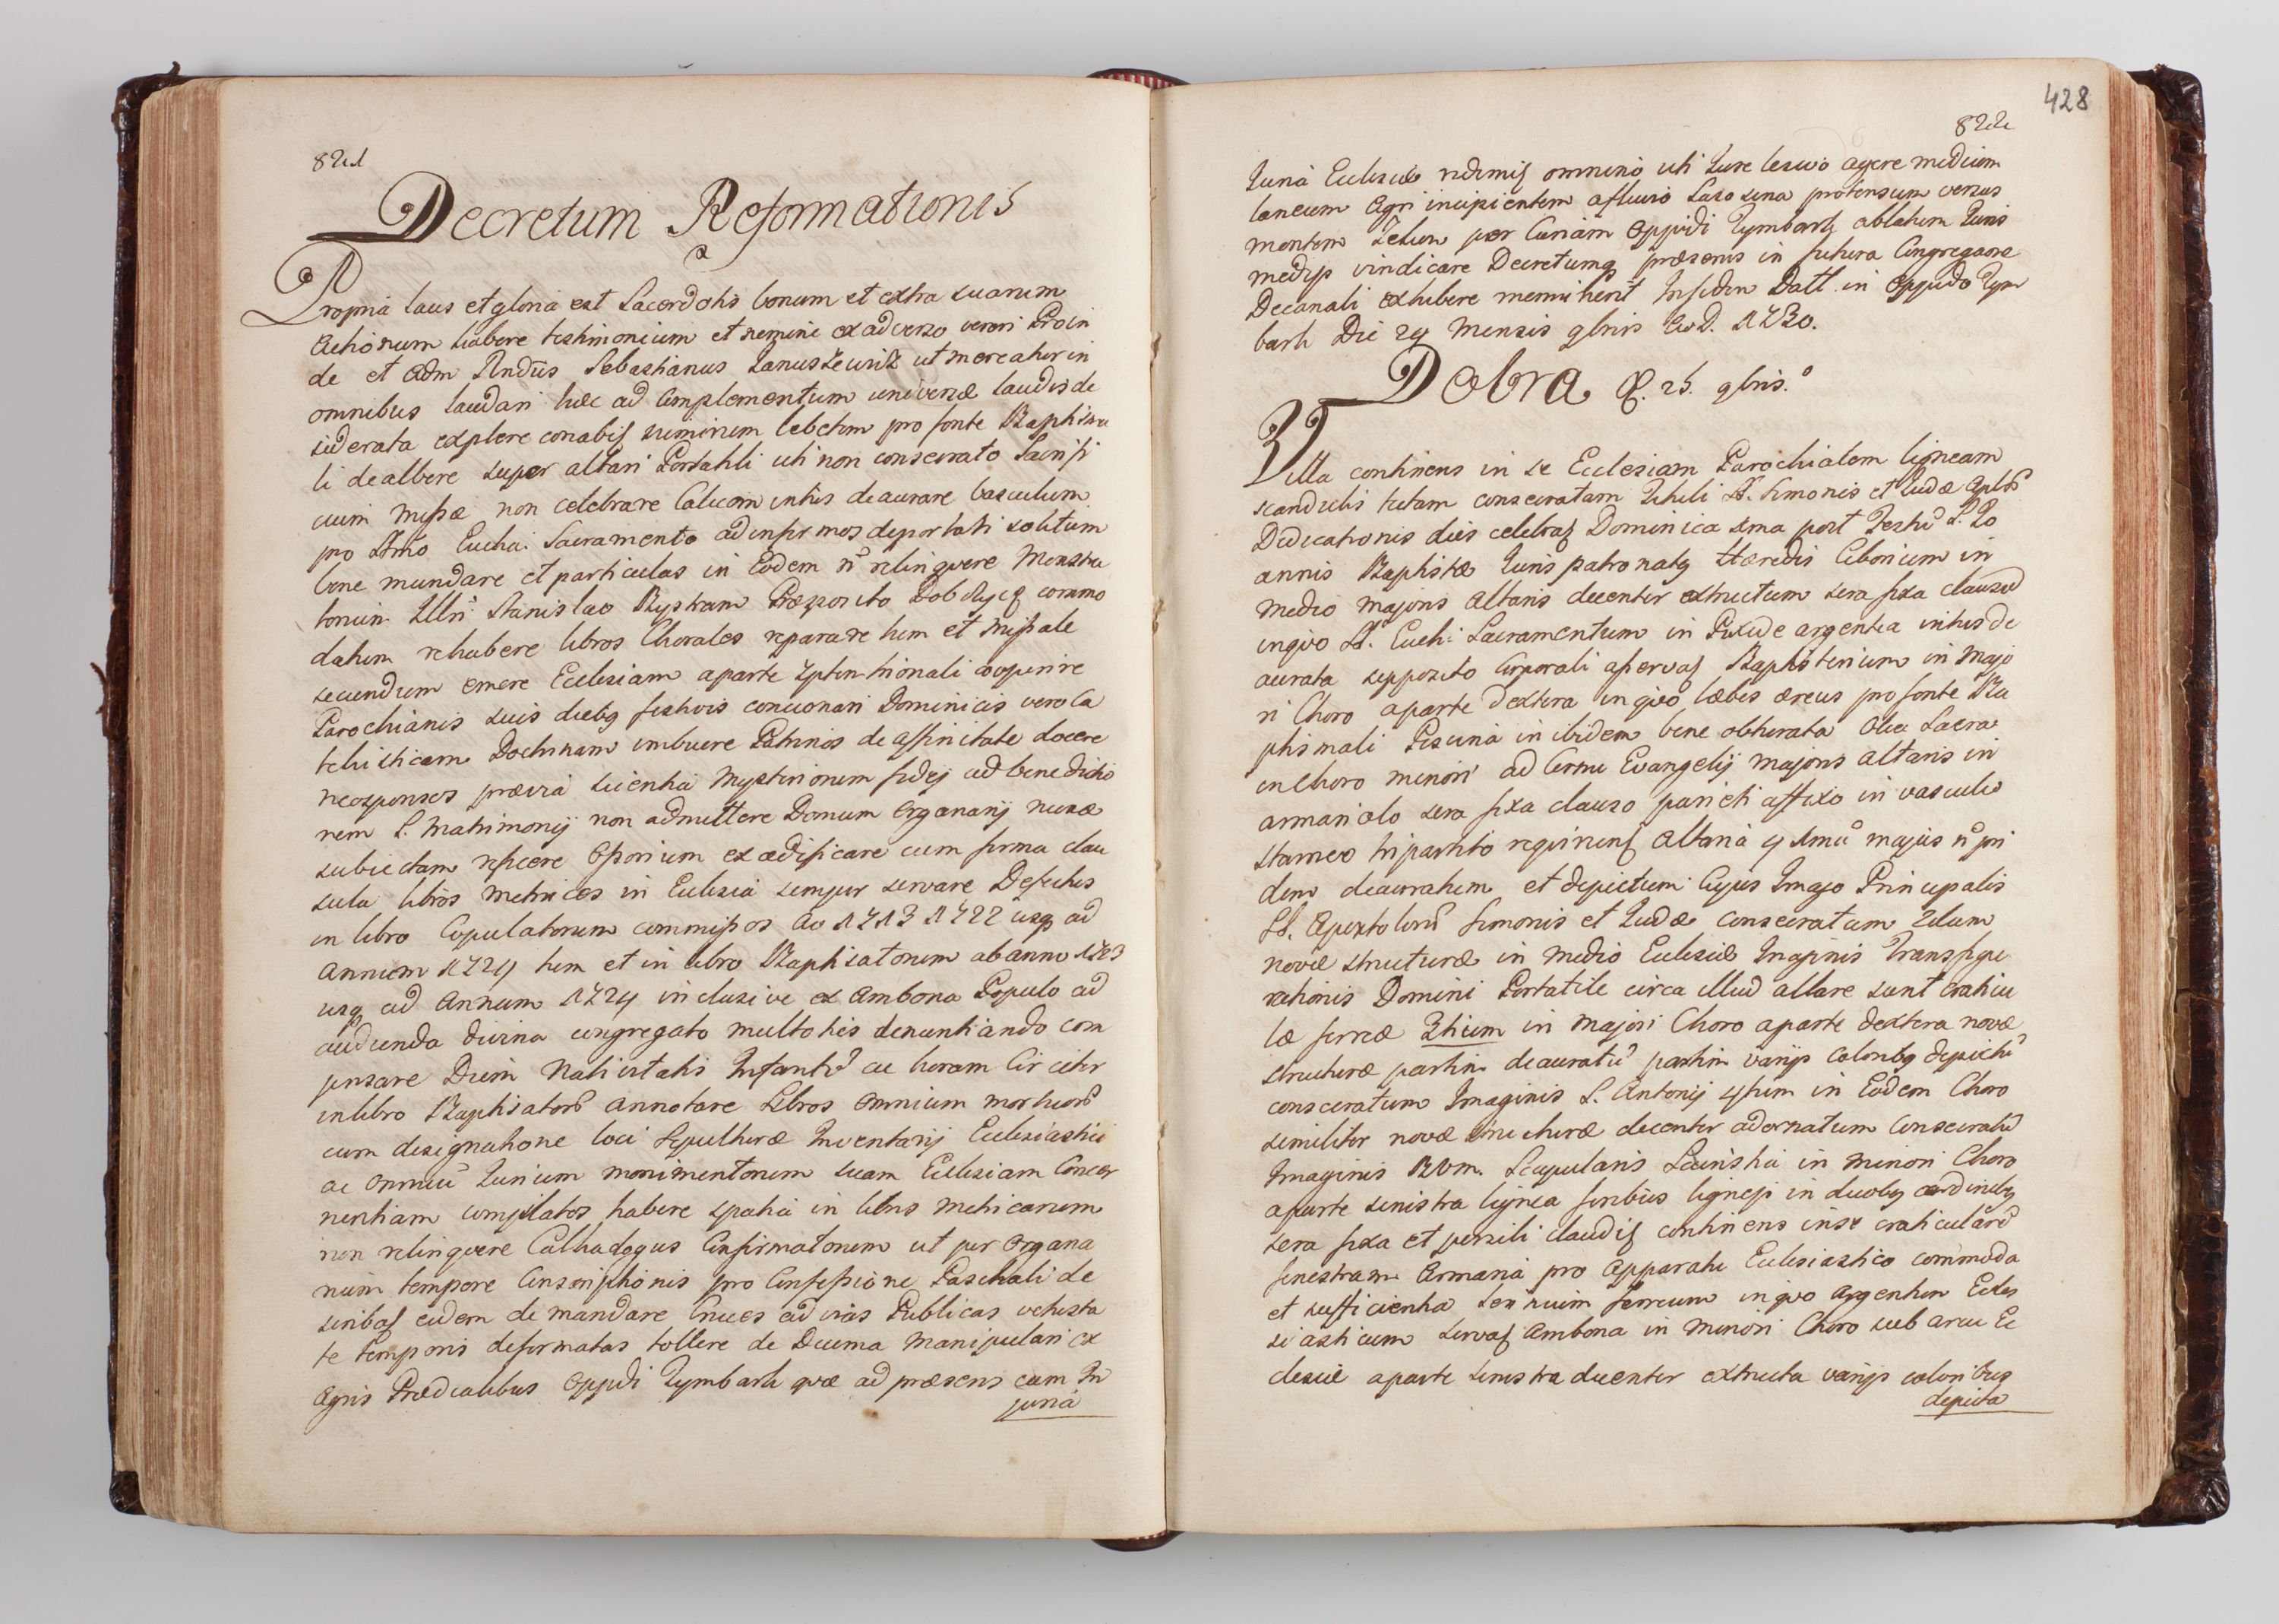 821
Decretum Reformationis
Propria laus et gloria est Sacerdotis bonum et extra suarum
Actionum habere testimonium et nemini ex adverso vereri Proin
de et Adm Rndus Sebastianus Januszewisz ut mereatur in
omnibus laudari haec ad Complementum universae laudis de
siderata explere conabit nimirum lebetem pro fonte Baptisma
li dealbare super altari Portatili uti non consecrato Sacrifi
cium Missae non celebrare Calicem intus deaurare Vasculum
pro SSmo Eucha: Sacramento ad infirmos deportari solitum
bene mundare et particulas in Eodem n relinquere Monstra
torium Illri Stanislao Bystram Praeposito Dobczycz commo
datum rehabere libros Chorales reparare tum et Missale
secundum emere Ecclesiam a parte Septentrionali cooperire
Parochianis suis diebg festivis concionari Dominicis vero Ca
techisticam Doctrinam imbuere Patrinos de affinitate docere
neosponsos praevia scientia Mysteriorum fidej ad benedictio
nem S. Matrimonij non admittere Domum Organarij ruinae
subiectam reficere Osorium exaedificare cum firma clau
sula libros Metrices in Ecclesia semper servare Defectus
in libro Copulatorum commissos Ao 1713 1722 usq ad
Annum 1729 tum et in libro Baptisatorum ab anno 1723
usq ad Annum 1729 inclusive ex Ambona Populo ad
audienda divina congregato multoties denuntiando com
pensare Diem Nativitatis Infantu ac horam Circiter
in libro Baptisatoru annotare Libros omnium mortuoru
cum designatione loci Sepulturae Inventarij Ecclesiastici
ac omniu Jurium monimentorum suam Ecclesiam Concer
nentiam compilatos habere spatia in libris Metricarum
non relinquere Cathalogus Confirmatorum ut per Organa
rium tempore Conscriptionis pro Confessione Paschali de
scribat eidem demandare Cruces ad vias Publicas vetusta
te temporis deformatas tollere de Decima Manipulari ex
Agris Praedialibus Oppidi Tymbark quae ad praesens cum In
juria
428
822
Juria Ecclesiae redimit omnino uti Jure lesivo agere medium
laneum Agri incipientem a fluvio Sasosina protensum versus
montem Zeluw per Curiam Oppidi Tymbark ablatum Juris
medijs vindicare Decretumq praesens in futura Congregaone
Decanali exhibere meminerit In fidem Datt. in Oppido Tym
bark Die 29 Mensis 9bris Ao D. 1730.
Dobra D. 25. 9bris.
Villa continens in se Ecclesiam Parochialem ligneam
scandulis tectam consecratam Tituli SS. Simonis et Judae Aplor
Dedicationis dies celebrat Dominica 1ma post Festu S. Jo
annis Baptistae Juris patronatg Haeredis Ciborium in
medio majoris Altaris decenter extructum sera fixa clausu
in quo SS. Euch: Sacramentum in Pixide argentea intus de
aurata supposito Corporali asservat Baptisterium in Majo
ri Choro a parte dextera in quo laebes aereus pro fonte Ba
ptismali Piscina in ibidem bene obturata Olea Sacra
in Choro minori ad Cornu Evangelij majoris altaris in
armariolo sera fixa clauso parieti affixo in vasculo
stanneo tripartito reperiunt Altaria 4 1mu majus n pri
dem deauratum et depictum Cujus Imago Principalis
SS. Apostoloru Simonis et Judae consecratum 2dum
novae structurae in medio Ecclesiae Imaginis Transfigu
rationis Domini Portatile circa illud altare sunt Craticu
lae ferreae 3tium in majori Choro a parte dextera novae
structurae partim deauratu partim varijs coloribg depictu
consecratum Imaginis S. Antonij 4tum in Eodem Choro
similiter novae structurae decenter adornatum Consecratu
Imaginis BVM. Scapularis Sacristia in minori Choro
a parte sinistra lignea foribus lignejs in duobg cardinibg
sera fixa et pensili claudit continens in se craticulare
fenestram Armaria pro Apparatu Ecclesiastico commoda
et sufficientia scrinium ferreum in quo Argentum Eccle
siasticum servat Ambona in Minori Choro sub arcu Ec
clesiae a parte sinistra decenter extructa varijs coloribus
depicta